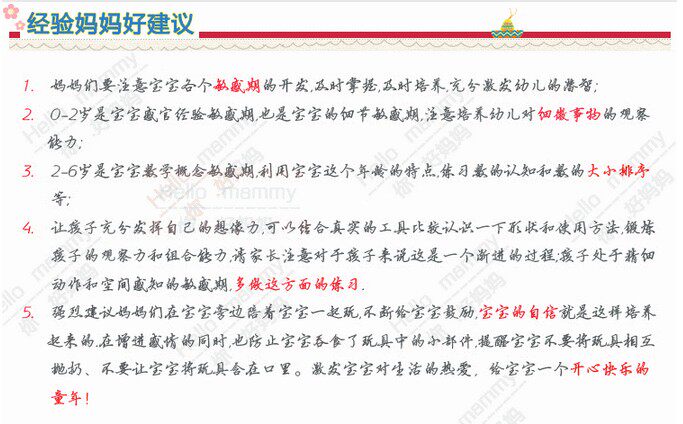 经验妈妈好建议
1. 妈妈们要注意宝宝各个敏感期的开发,及时掌握,及时培养,充分激发幼儿的潜智;
2. 0-2岁是宝宝感官经验敏感期,也是宝宝的细节敏感期,注意培养幼儿对细微事物的观察
能力;
3. 2-6岁是宝宝数学概念敏感期,利用宝宝这个年龄的特点,练习数的认知和数的大小排序
等;
4. 让孩子充分发挥自己的想像力,可以结合真实的工具比较认识一下形状和使用方法,锻炼
孩子的观察力和组合能力,请家长注意对于孩子来说这是一个渐进的过程;孩子处于精细
动作和空间感知的敏感期,多做这方面的练习.
5. 强烈建议妈妈们在宝宝旁边陪着宝宝一起玩,不断给宝宝鼓励,宝宝的自信就是这样培养
起来的,在增进感情的同时,也防止宝宝吞食了玩具中的小部件,提醒宝宝不要将玩具相互
抛扔、不要让宝宝将玩具含在口里。激发宝宝对生活的热爱，给宝宝一个开心快乐的
童年!
Hello mammy
你好妈妈